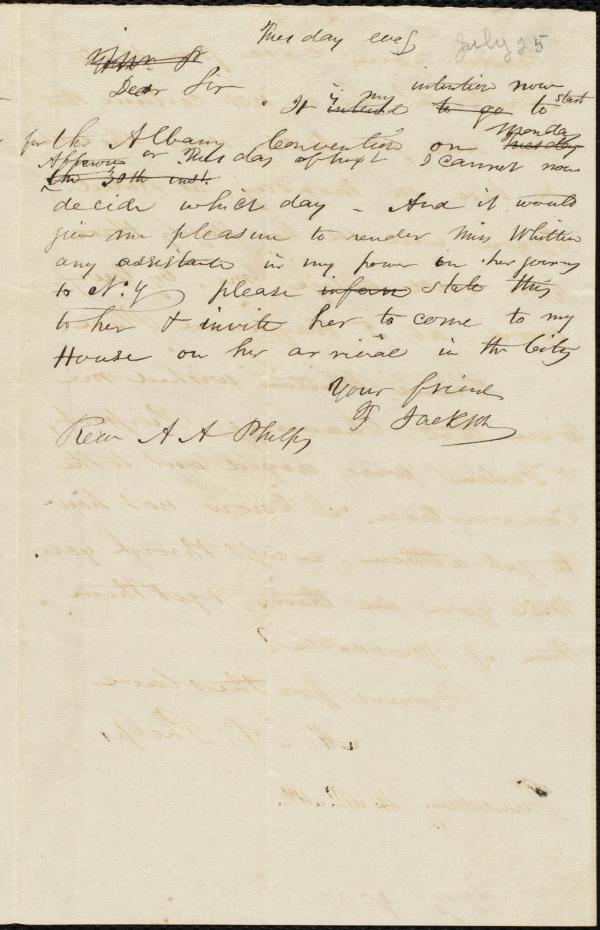 Tuesday eveg July 25
Dear Sir
It is my intention now
intend to go to start
for the Albany Convention on Monday Tuesday
Afternoon or Tuesday of next I cannot now
the 30th inst.
decide which day - And it would
give me pleasure to render Miss Whittier
any assistance in my power on her journey
to N.Y please inform state this
to her & invite her to come to my
House on her arrival in the City
Your friend
F Jackson
Revr A A Phelps